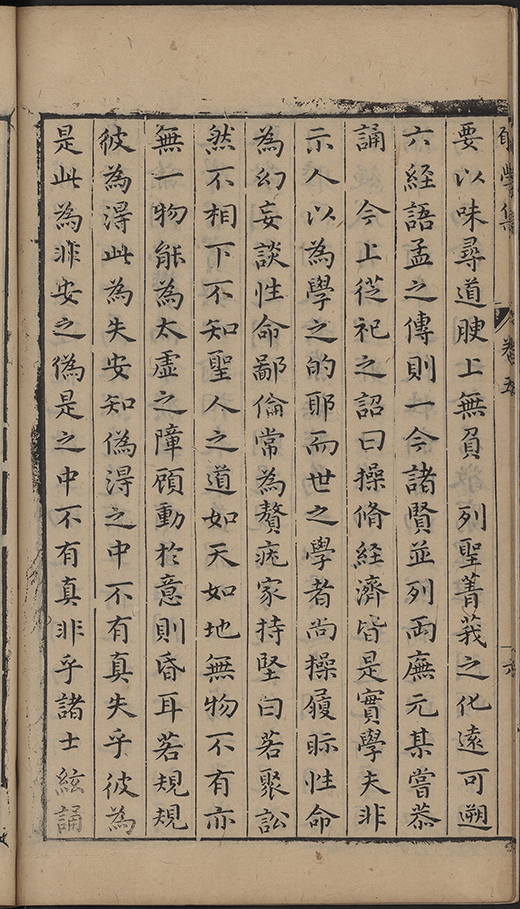 要以味尋道腴上無負 列聖菁莪之化遠可遡
六經語孟之傳則一今諸賢並列兩廡元某嘗恭
誦 今上從祀之詔曰操脩經濟皆是實學夫非
示人以為學之的耶而世之學者尚操履眎性命
為幻妄談性命鄙倫常為贅疣家持堅白若聚訟
然不相下不知聖人之道如天如地無物不有亦
無一物能為太虛之障頋動於意則昏耳若規規
彼為淂此為失安知偽淂之中不有真失乎彼為
是此為非安之偽是之中不有真非乎諸士絃誦
學集
卷五